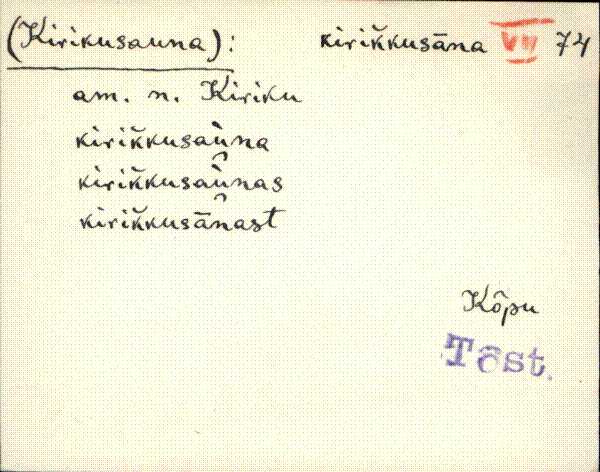 (Kirikusauna): kirik̆kusāna VII 74
am. n. Kiriku
kirik̆kusau̯na
kirik̆kusau̯nas
kirik̆kusānast
Kõpu
Tõst.